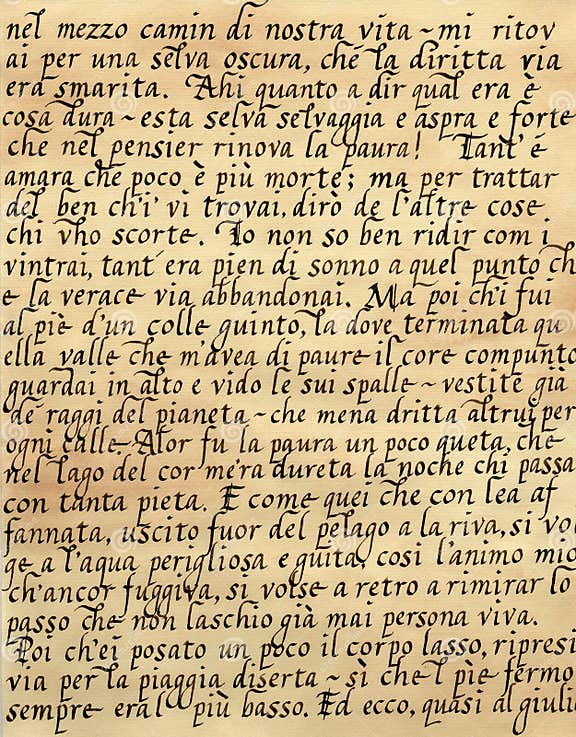 nel mezzo camin di nostra vita ~ mi ritov
ai per una selva oscura, ché la diritta via
era smarita. Ahi quanto a dir qual era è
cosa dura ~ esta selva selvaggia e aspra e forte
che nel pensier rinova la paura! Tant'é
amara che poco è più morte; ma per trattar
del ben ch'i' vi trovai, dirò de l'altre cose
chi vho scorte. Io non so ben ridir com i
vintrai, tant'era pien di sonno a quel punto ch
e la verace via abbandonai. Ma poi ch'i fui
al piè d'un colle guinto, la dove terminata qu
ella valle che m'avea di paure il core compunto
guardai in alto e vido le sui spalle ~ vestite già
de raggi del pianeta ~ che mena dritta altrui per
ogni calle. Alor fu la paura un poco queta, che
nel lago del cor m'era dureta la noche chi passa
con tanta pieta. E come quei che con lea af
fannata, uscito fuor del pelago a la riva, si vol
ge a l'aqua perigliosa e guita, cosi l'animo mio
ch'ancor fuggiva, si volse a retro a rimirar lo
passo che non laschio già mai persona viva.
Poi ch'ei posato un poco il corpo lasso, ripresi
via per la piaggia diserta ~ sì che l pìe fermo
sempre era l più basso. Ed ecco, quasi al giuli